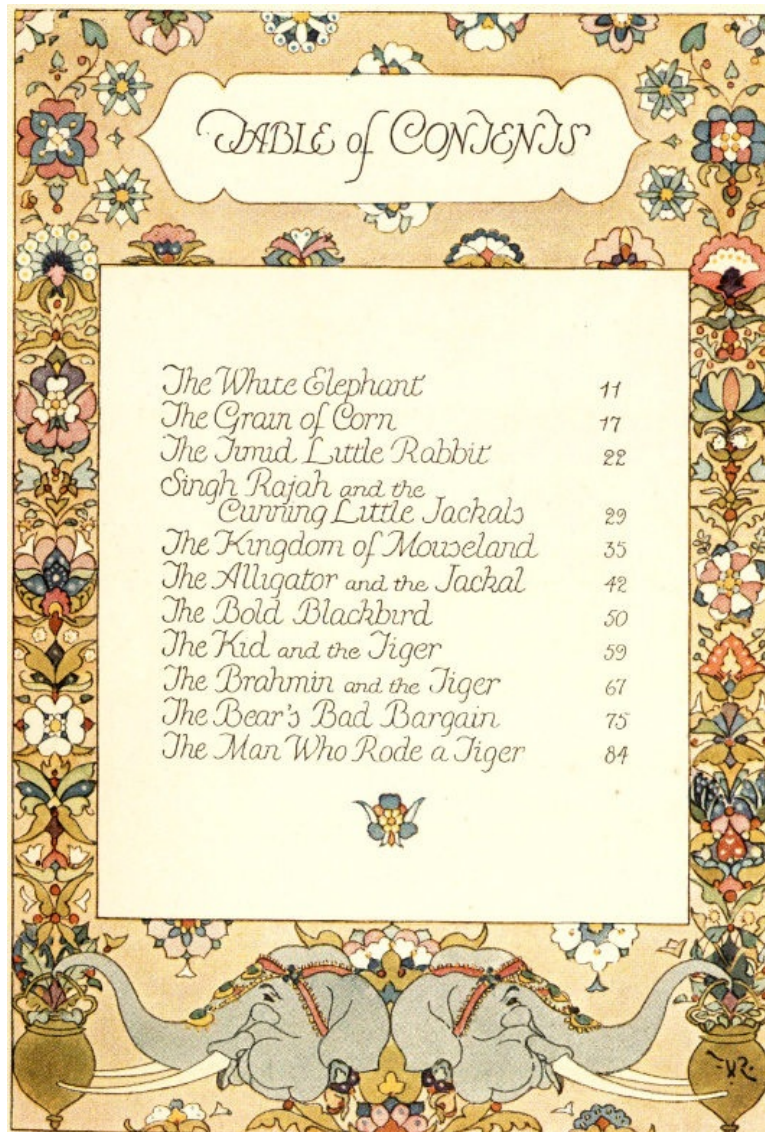 TABLE of CONTENTS
The White Elephant 11
The Grain of Corn 17
The Timid Little Rabbit 22
Singh Rajah and the
Cunning Little Jackals 29
The Kingdom of Mouseland 35
The Alligator and the Jackal 42
The Bold Blackbird 50
The Kid and the Tiger 59
The Brahmin and the Tiger 67
The Bear's Bad Bargain 75
The Man Who Rode a Tiger 84